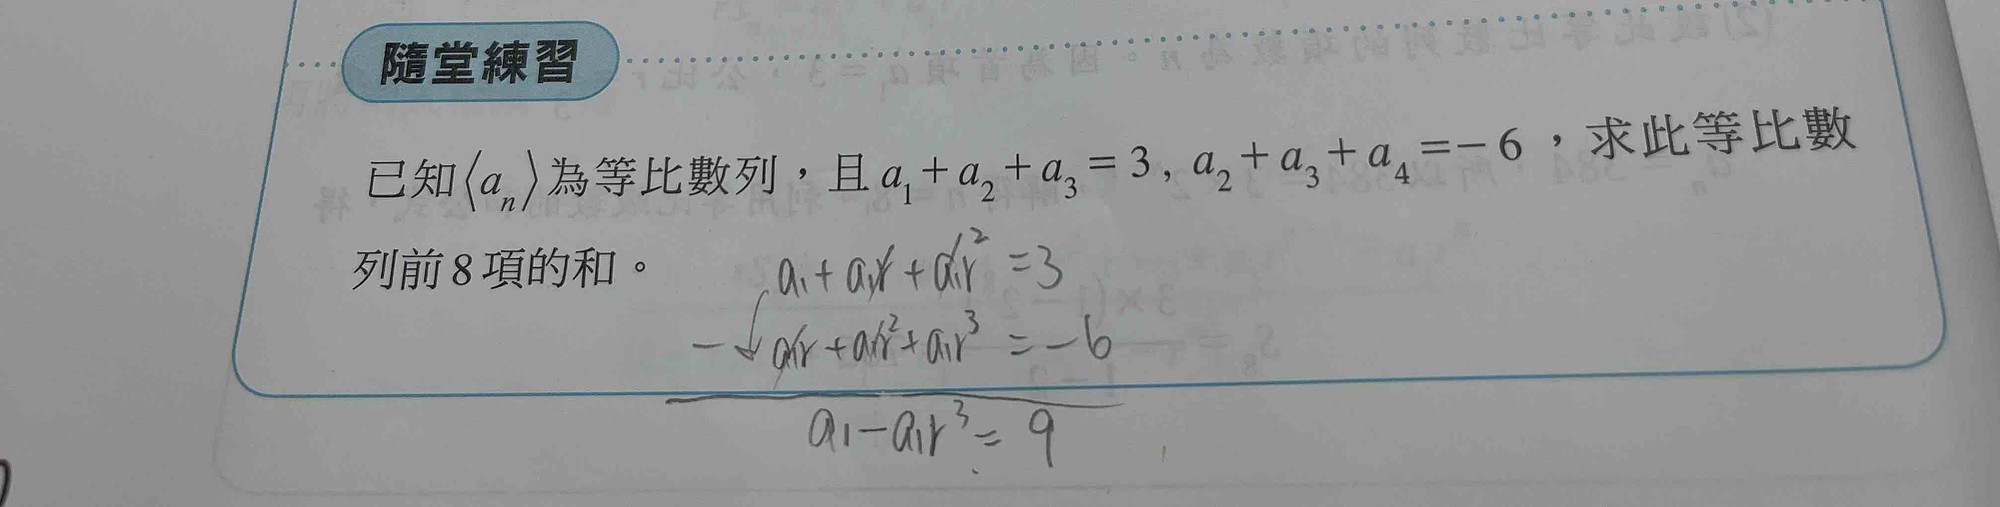 隨堂練習
已知⟨aₙ⟩為等比數列，且a₁+a₂+a₃=3, a₂+a₃+a₄=-6，求此等比數
列前8項的和。
a₁+a₁r+a₁r²=3
-a₁r+a₁r²+a₁r³=-6
a₁-a₁r³=9